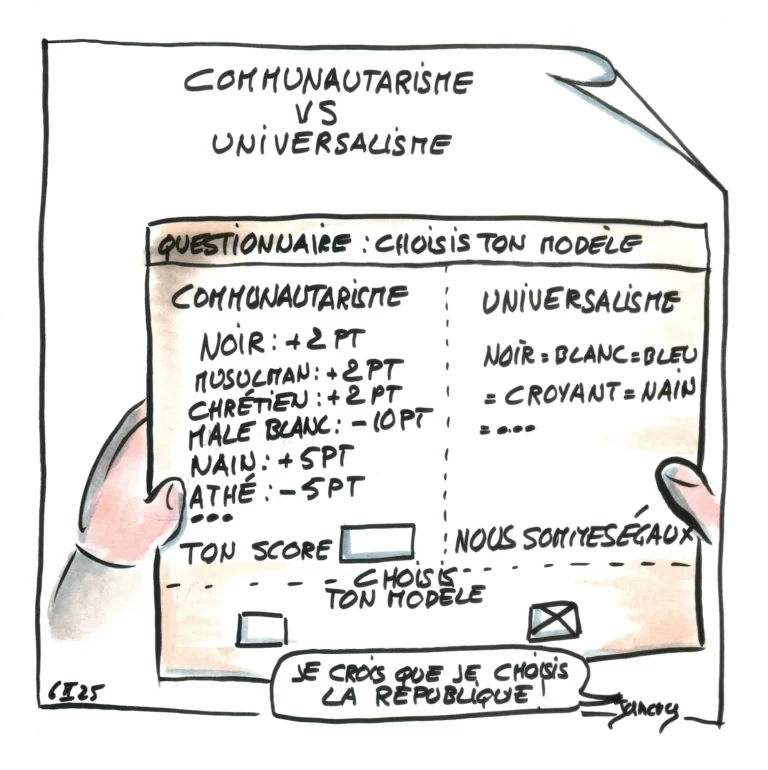 COMMUNAUTARISME
VS
UNIVERSALISME
QUESTIONNAIRE : CHOISIS TON MODÈLE
COMMUNAUTARISME
NOIR : +2 PT
MUSULMAN : +2 PT
CHRÉTIEN : +2 PT
MALE BLANC : -10 PT
NAIN : +5 PT
ATHÉ : -5 PT
...
TON SCORE
UNIVERSALISME
NOIR = BLANC = BLEU
= CROYANT = NAIN
= ....
NOUS SOMMES ÉGAUX
CHOISIS
TON MODÈLE
JE CROIS QUE JE CHOISIS
LA RÉPUBLIQUE
6 II 25